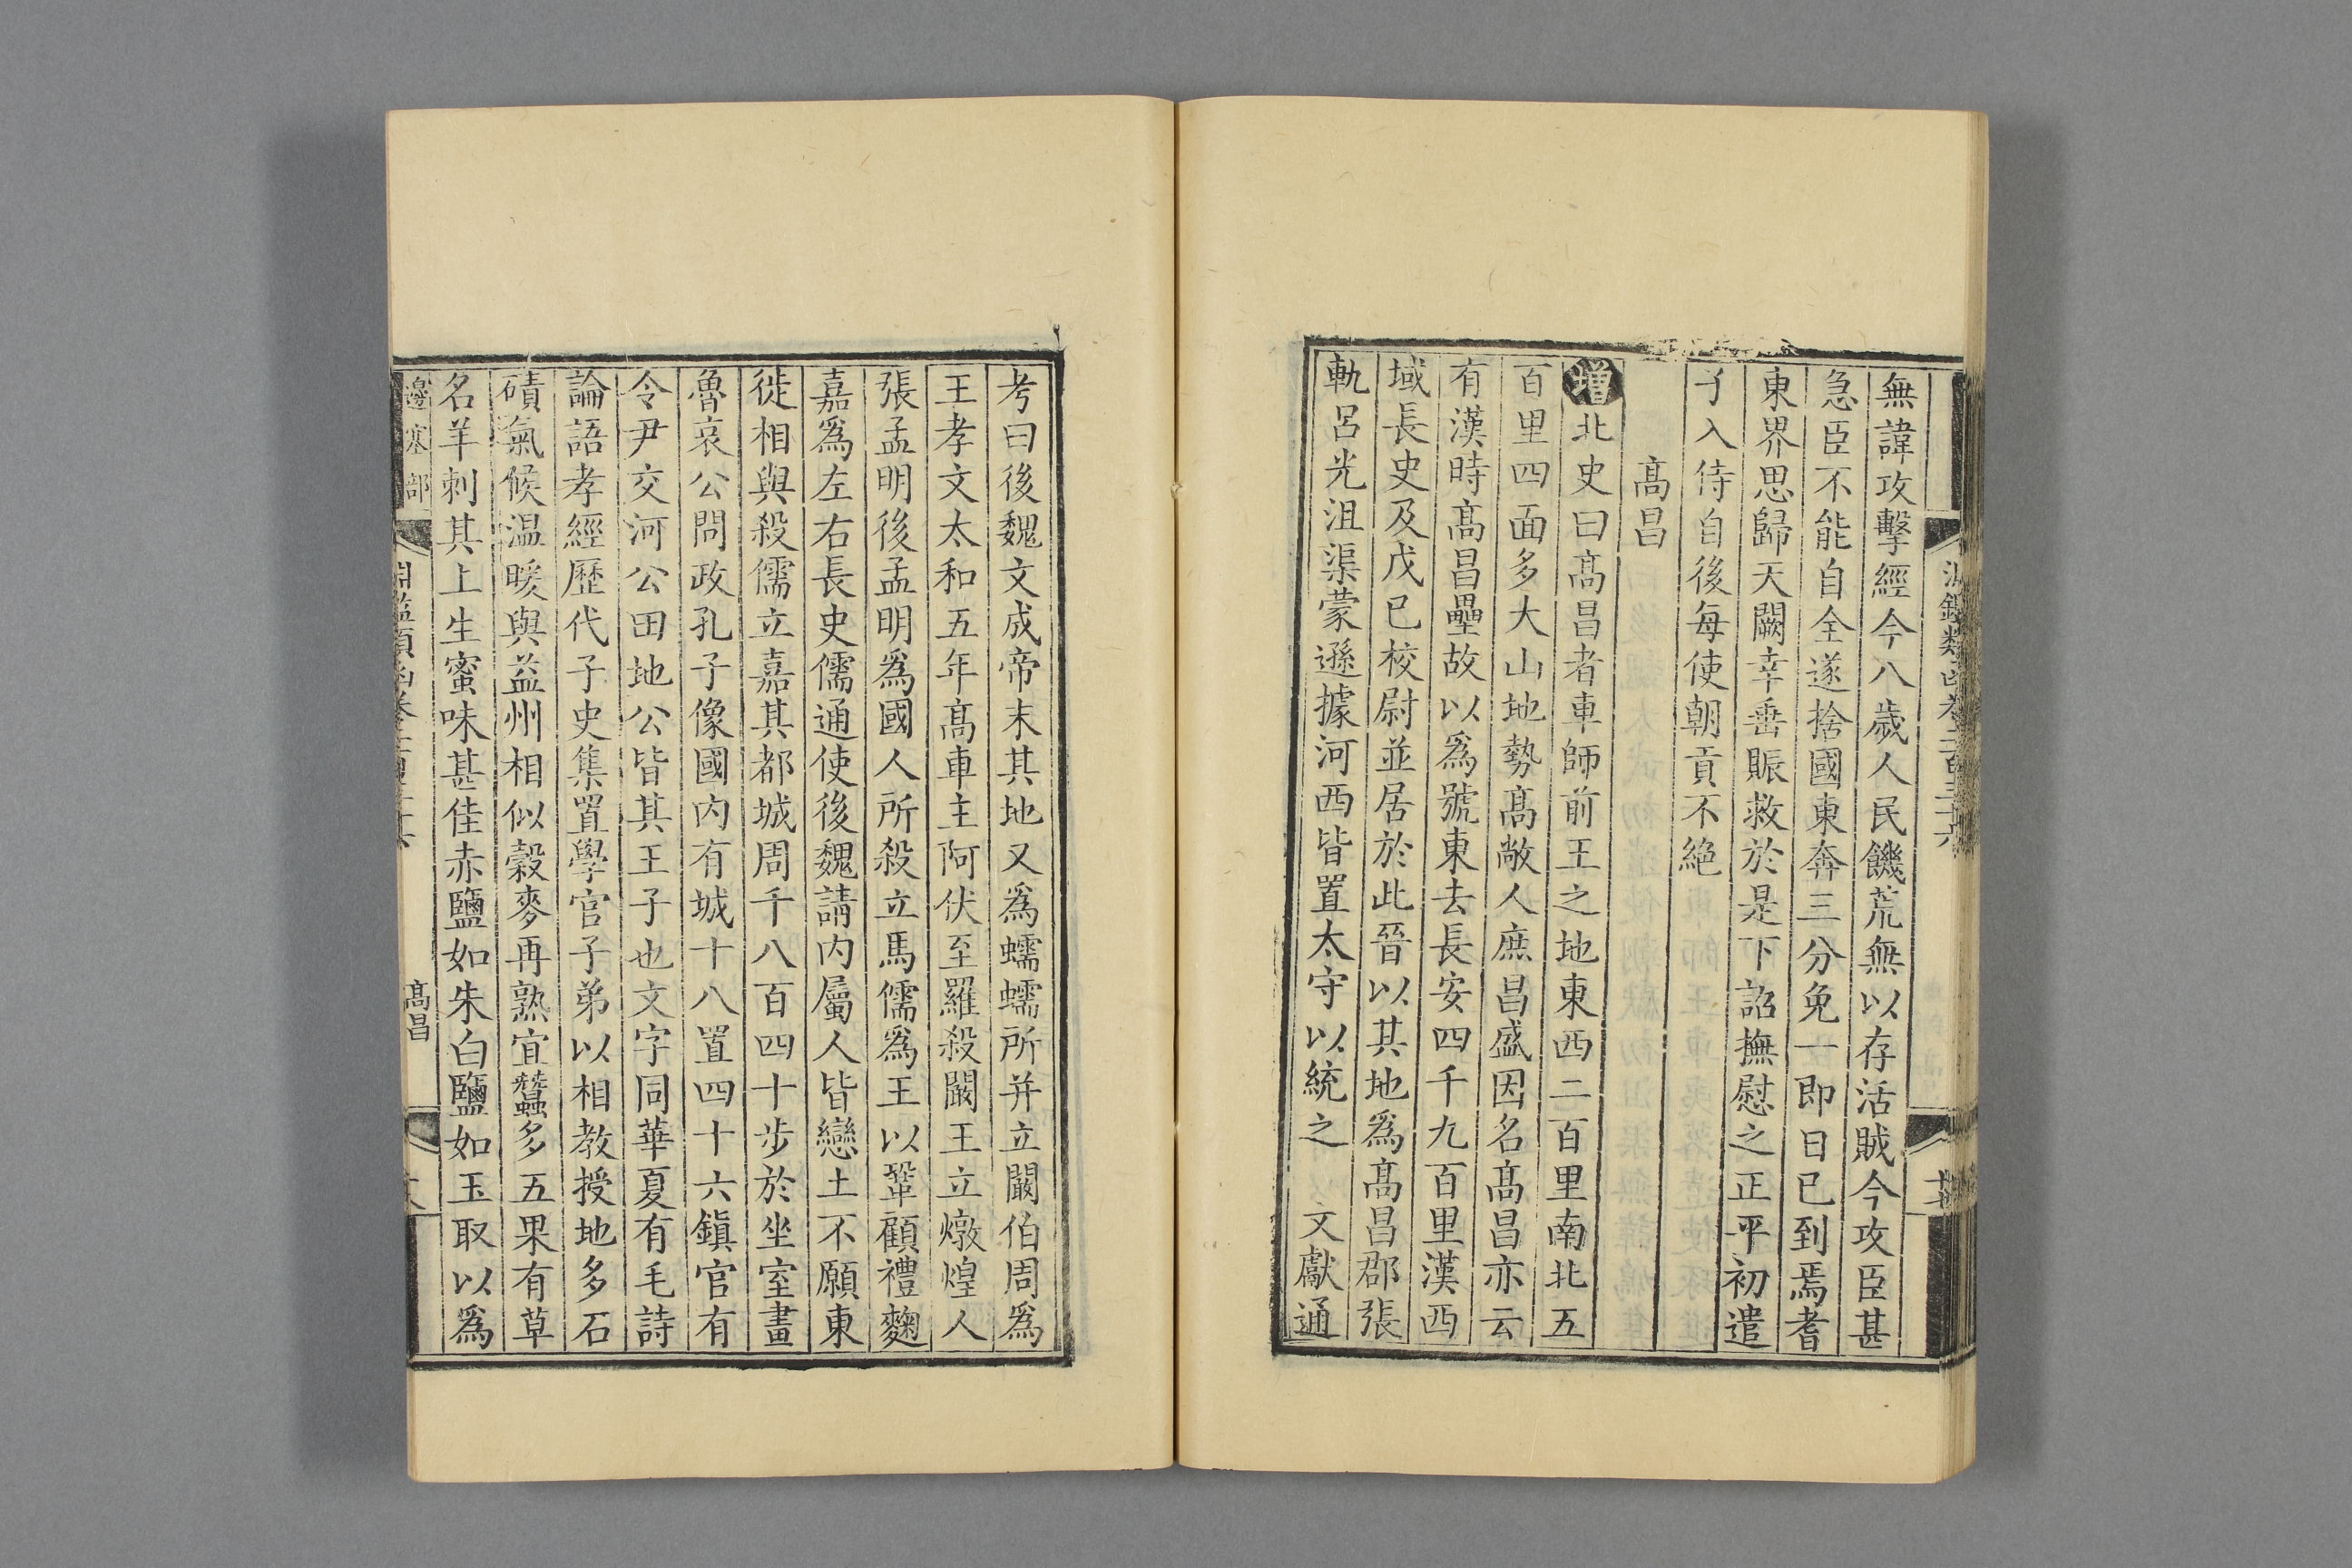 無諱攻擊經今八歲人民饑荒無以存活賊今攻臣甚
急臣不能自全遂捨國東奔三分免一即日已到焉耆
東界思歸天闕幸垂賑救於是下詔撫慰之正平初遣
子入侍自後每使朝貢不絕
髙昌
增北史曰髙昌者車師前王之地東西二百里南北五
百里四面多大山地勢髙敞人庶昌盛因名髙昌亦云
有漢時髙昌壘故以爲號東去長安四千九百里漢西
域長史及戊已校尉並居於此晉以其地爲髙昌郡張
軌呂光沮渠蒙遜據河西皆置太守以統之 文獻通
考曰後魏文成帝末其地又爲蠕蠕所并立闞伯周爲
王孝文太和五年髙車主阿伏至羅殺闞王立燉煌人
張孟明後孟明爲國人所殺立馬儒爲王以鞏顧禮麴
嘉爲左右長史儒通使後魏請内屬人皆戀土不願東
徙相與殺儒立嘉其都城周千八百四十步於坐室畫
魯哀公問政孔子像國内有城十八置四十六鎮官有
令尹交河公田地公皆其王子也文字同華夏有毛詩
論語孝經歷代子史集置學官子弟以相教授地多石
磧氣候温暖與益州相似榖麥再熟宜蠶多五果有草
名羊刺其上生蜜味甚佳赤鹽如朱白鹽如玉取以爲
邊塞部
髙昌